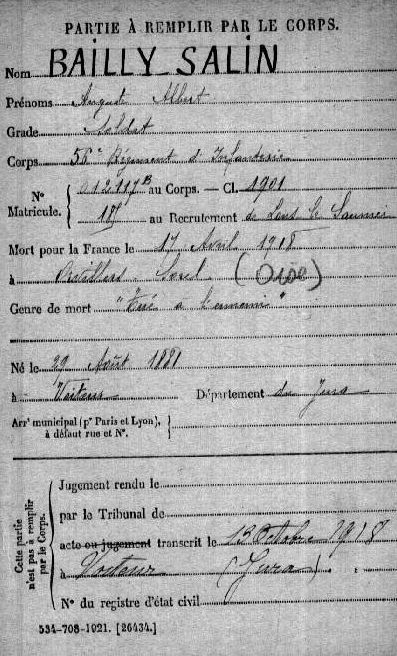 PARTIE À REMPLIR PAR LE CORPS.
Nom BAILLY SALIN
Prénoms Auguste Albert
Grade Soldat
Corps 56e Régiment d'Infanterie
N° Matricule. { 012117B au Corps. — Cl. 1901
au Recrutement de Lons le Saunier
Mort pour la France le 17 Avril 1918
à Orvillers Sorel (Oise)
Genre de mort "Tué à l'ennemi"
Né le 29 Août 1881
à Voiteur Département du Jura
Arrt municipal (pr Paris et Lyon), à défaut rue et N°. {
Cette partie n'est pas à remplir par le Corps.
Jugement rendu le
par le Tribunal de
acte ou jugement transcrit le 13 Octobre 1918
à Voiteur (Jura)
N° du registre d'état civil
534-708-1921. [26434.]